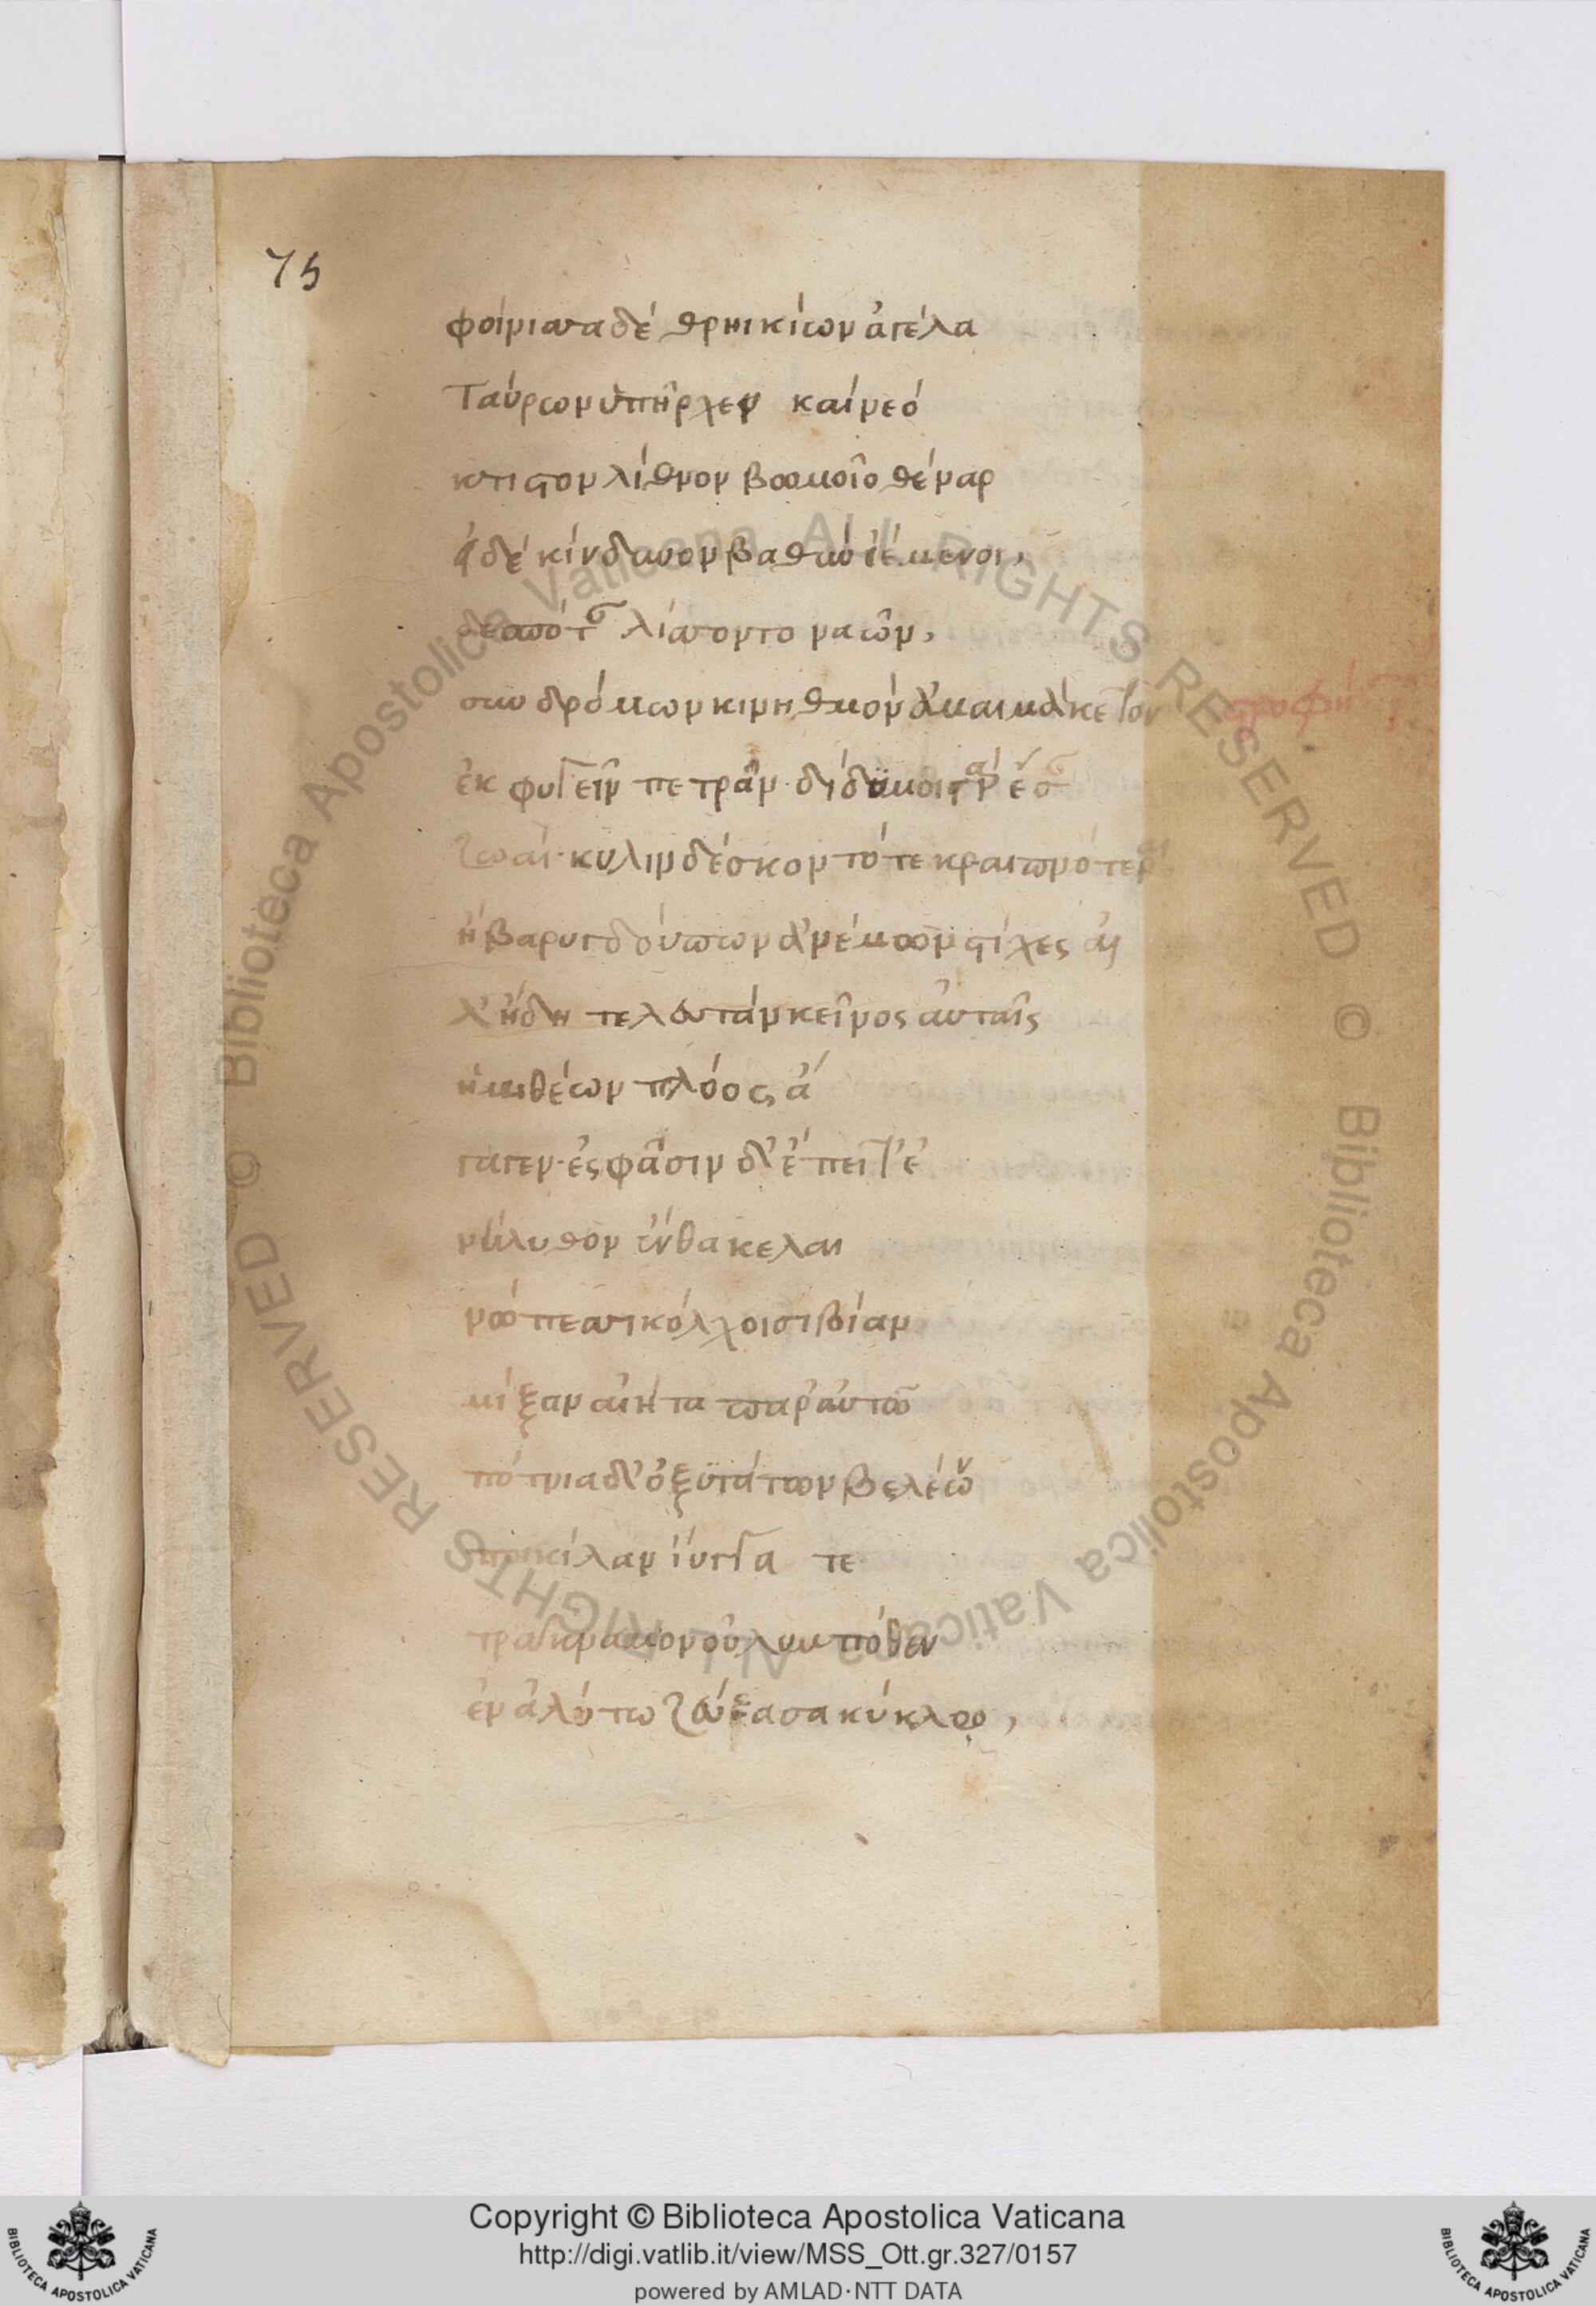 75
φοίνισσα δὲ θρηικίων ἀγέλα
Ταύρων ὑπῆρχεν καὶ νεό
κτιστον λίθινον βωμοῖο θέναρ
ἐς δὲ κίνδυνον βαθὺν ἱέμενοι,
δεσπόταν λίσσοντο ναῶν,
συνδρόμων κινηθμὸν ἀμαιμάκετον
στροφὴ
ἐκφυγεῖν πετρᾶν· δίδυμοι γὰρ ἔσαν
ζωαί· κυλινδέσκοντό τε κραιπνότεραι
ἢ βαρυγδούπων ἀνέμων στίχες ἀλ
λ' ἤδη τελευτὰν κεῖνος αὐταῖς
ἡμιθέων πλόος ἄ
γαγεν· ἐς φᾶσιν δ' ἔπειτ' ἐ
νήλυθον ἔνθα κελαι
νώπεσσι κόλχοισι βίαν
μίξαν αἰήτα παρ' αὐτῶ
πότνια δ' ὀξυτάτων βελέων
ποικίλαν ἴυγγα τε
τράκναμον οὐλυμπόθεν
ἐν ἀλύτω ζεύξασα κύκλῳ,
© Biblioteca Apostolica Vaticana ALL RIGHTS RESERVED © Biblioteca Apostolica Vaticana ALL RIGHTS RESERVED
Copyright © Biblioteca Apostolica Vaticana
http://digi.vatlib.it/view/MSS_Ott.gr.327/0157
powered by AMLAD·NTT DATA
BIBLIOTECA APOSTOLICA VATICANA
BIBLIOTECA APOSTOLICA VATICANA